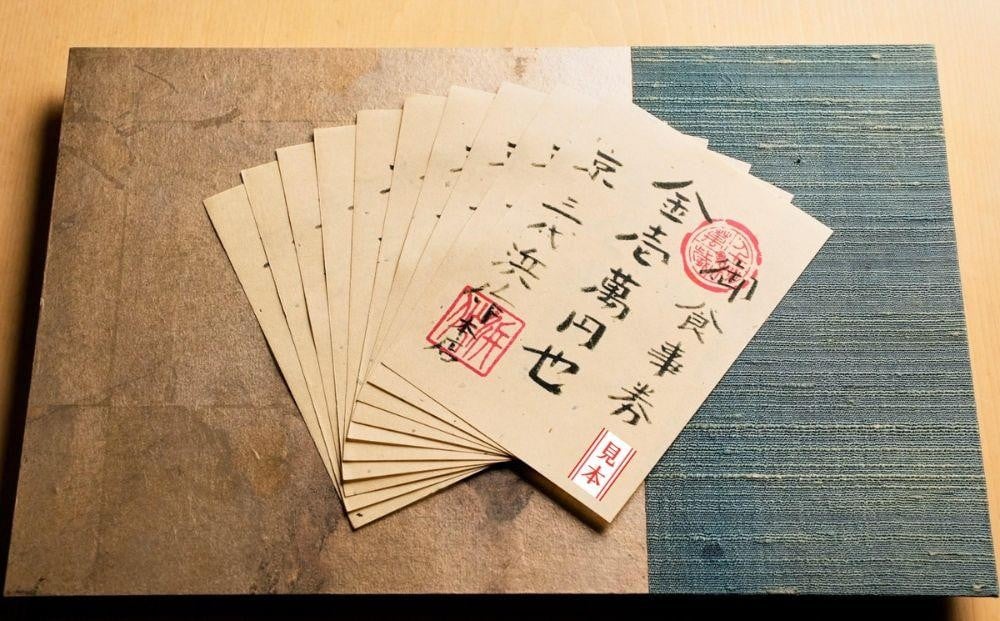 御食事券
金壱萬円也
京 三代 浜作本店
見本